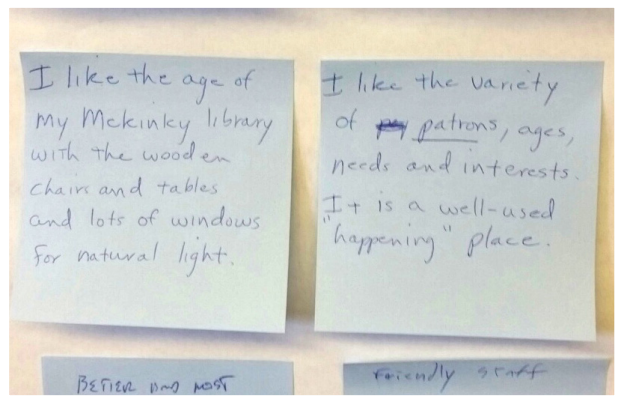 I like the age of
my Mckinky library
with the wooden
chairs and tables
and lots of windows
for natural light.
I like the variety
of patrons, ages,
needs and interests.
It is a well-used
"happening" place.
BETTER AND MOST
Friendly staff